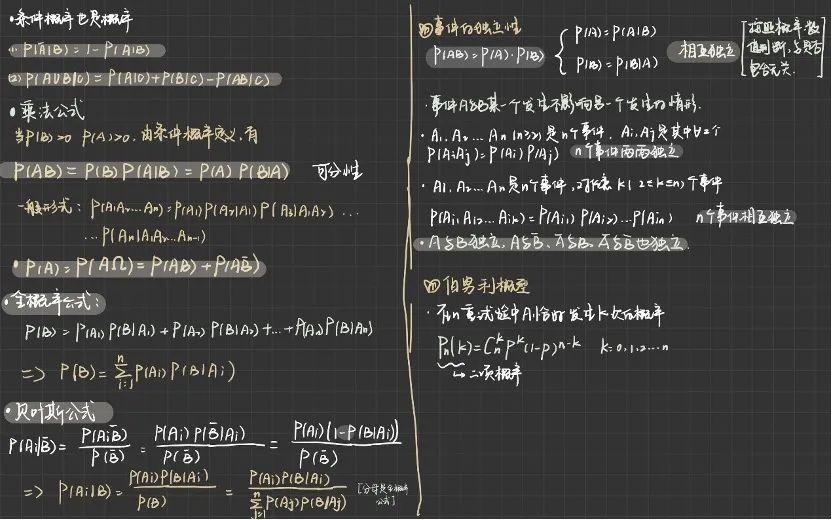 •条件概率也是概率
(1) P(Ā|B)=1-P(A|B)
(2) P(A∪B|C)=P(A|C)+P(B|C)-P(AB|C)
•乘法公式
当P(B)>0 P(A)>0,由条件概率定义,有
P(AB)=P(B)P(A|B)=P(A)P(B|A) 可分性
一般形式:P(A₁A₂…Aₙ)=P(A₁)P(A₂|A₁)P(A₃|A₁A₂)…
…P(Aₙ|A₁A₂…Aₙ₋₁)
•P(A)=P(AΩ)=P(AB)+P(AB̄)
•全概率公式:
P(B)=P(A₁)P(B|A₁)+P(A₂)P(B|A₂)+…+P(Aₙ)P(B|Aₙ)
=> P(B)=∑ⁿᵢ₌₁P(Aᵢ)P(B|Aᵢ)
•贝叶斯公式
P(Aᵢ|B̄)=P(AᵢB̄)/P(B̄)=P(Aᵢ)P(B̄|Aᵢ)/P(B̄)=P(Aᵢ)(1-P(B|Aᵢ))/P(B̄)
=> P(Aᵢ|B)=P(Aᵢ)P(B|Aᵢ)/P(B)=P(Aᵢ)P(B|Aᵢ)/∑ⁿⱼ₌₁P(Aⱼ)P(B|Aⱼ) [分母是全概率
公式]
四事件的独立性
P(AB)=P(A)·P(B) { P(A)=P(A|B)
P(B)=P(B|A)
相互独立
[按照概率数
值判断,与是否
包含无关.]
·事件A与B某一个发生不影响另一个发生的情形.
·A₁,A₂…Aₙ(n≥2)是n个事件,Aᵢ,Aⱼ是其中∀2个
P(AᵢAⱼ)=P(Aᵢ)P(Aⱼ) n个事件两两独立
·A₁,A₂…Aₙ是n个事件,对任意k(2≤k≤n)个事件
P(Aᵢ₁Aᵢ₂…Aᵢₖ)=P(Aᵢ₁)P(Aᵢ₂)…P(Aᵢₙ) n个事件相互独立
·A与B独立,A与B̄、Ā与B、Ā与B̄也独立.
四伯努利概型
·在n重试验中A恰好发生k次的概率
Pₙ(k)=Cₙᵏpᵏ(1-p)ⁿ⁻ᵏ k=0,1,2…n
↳二项概率